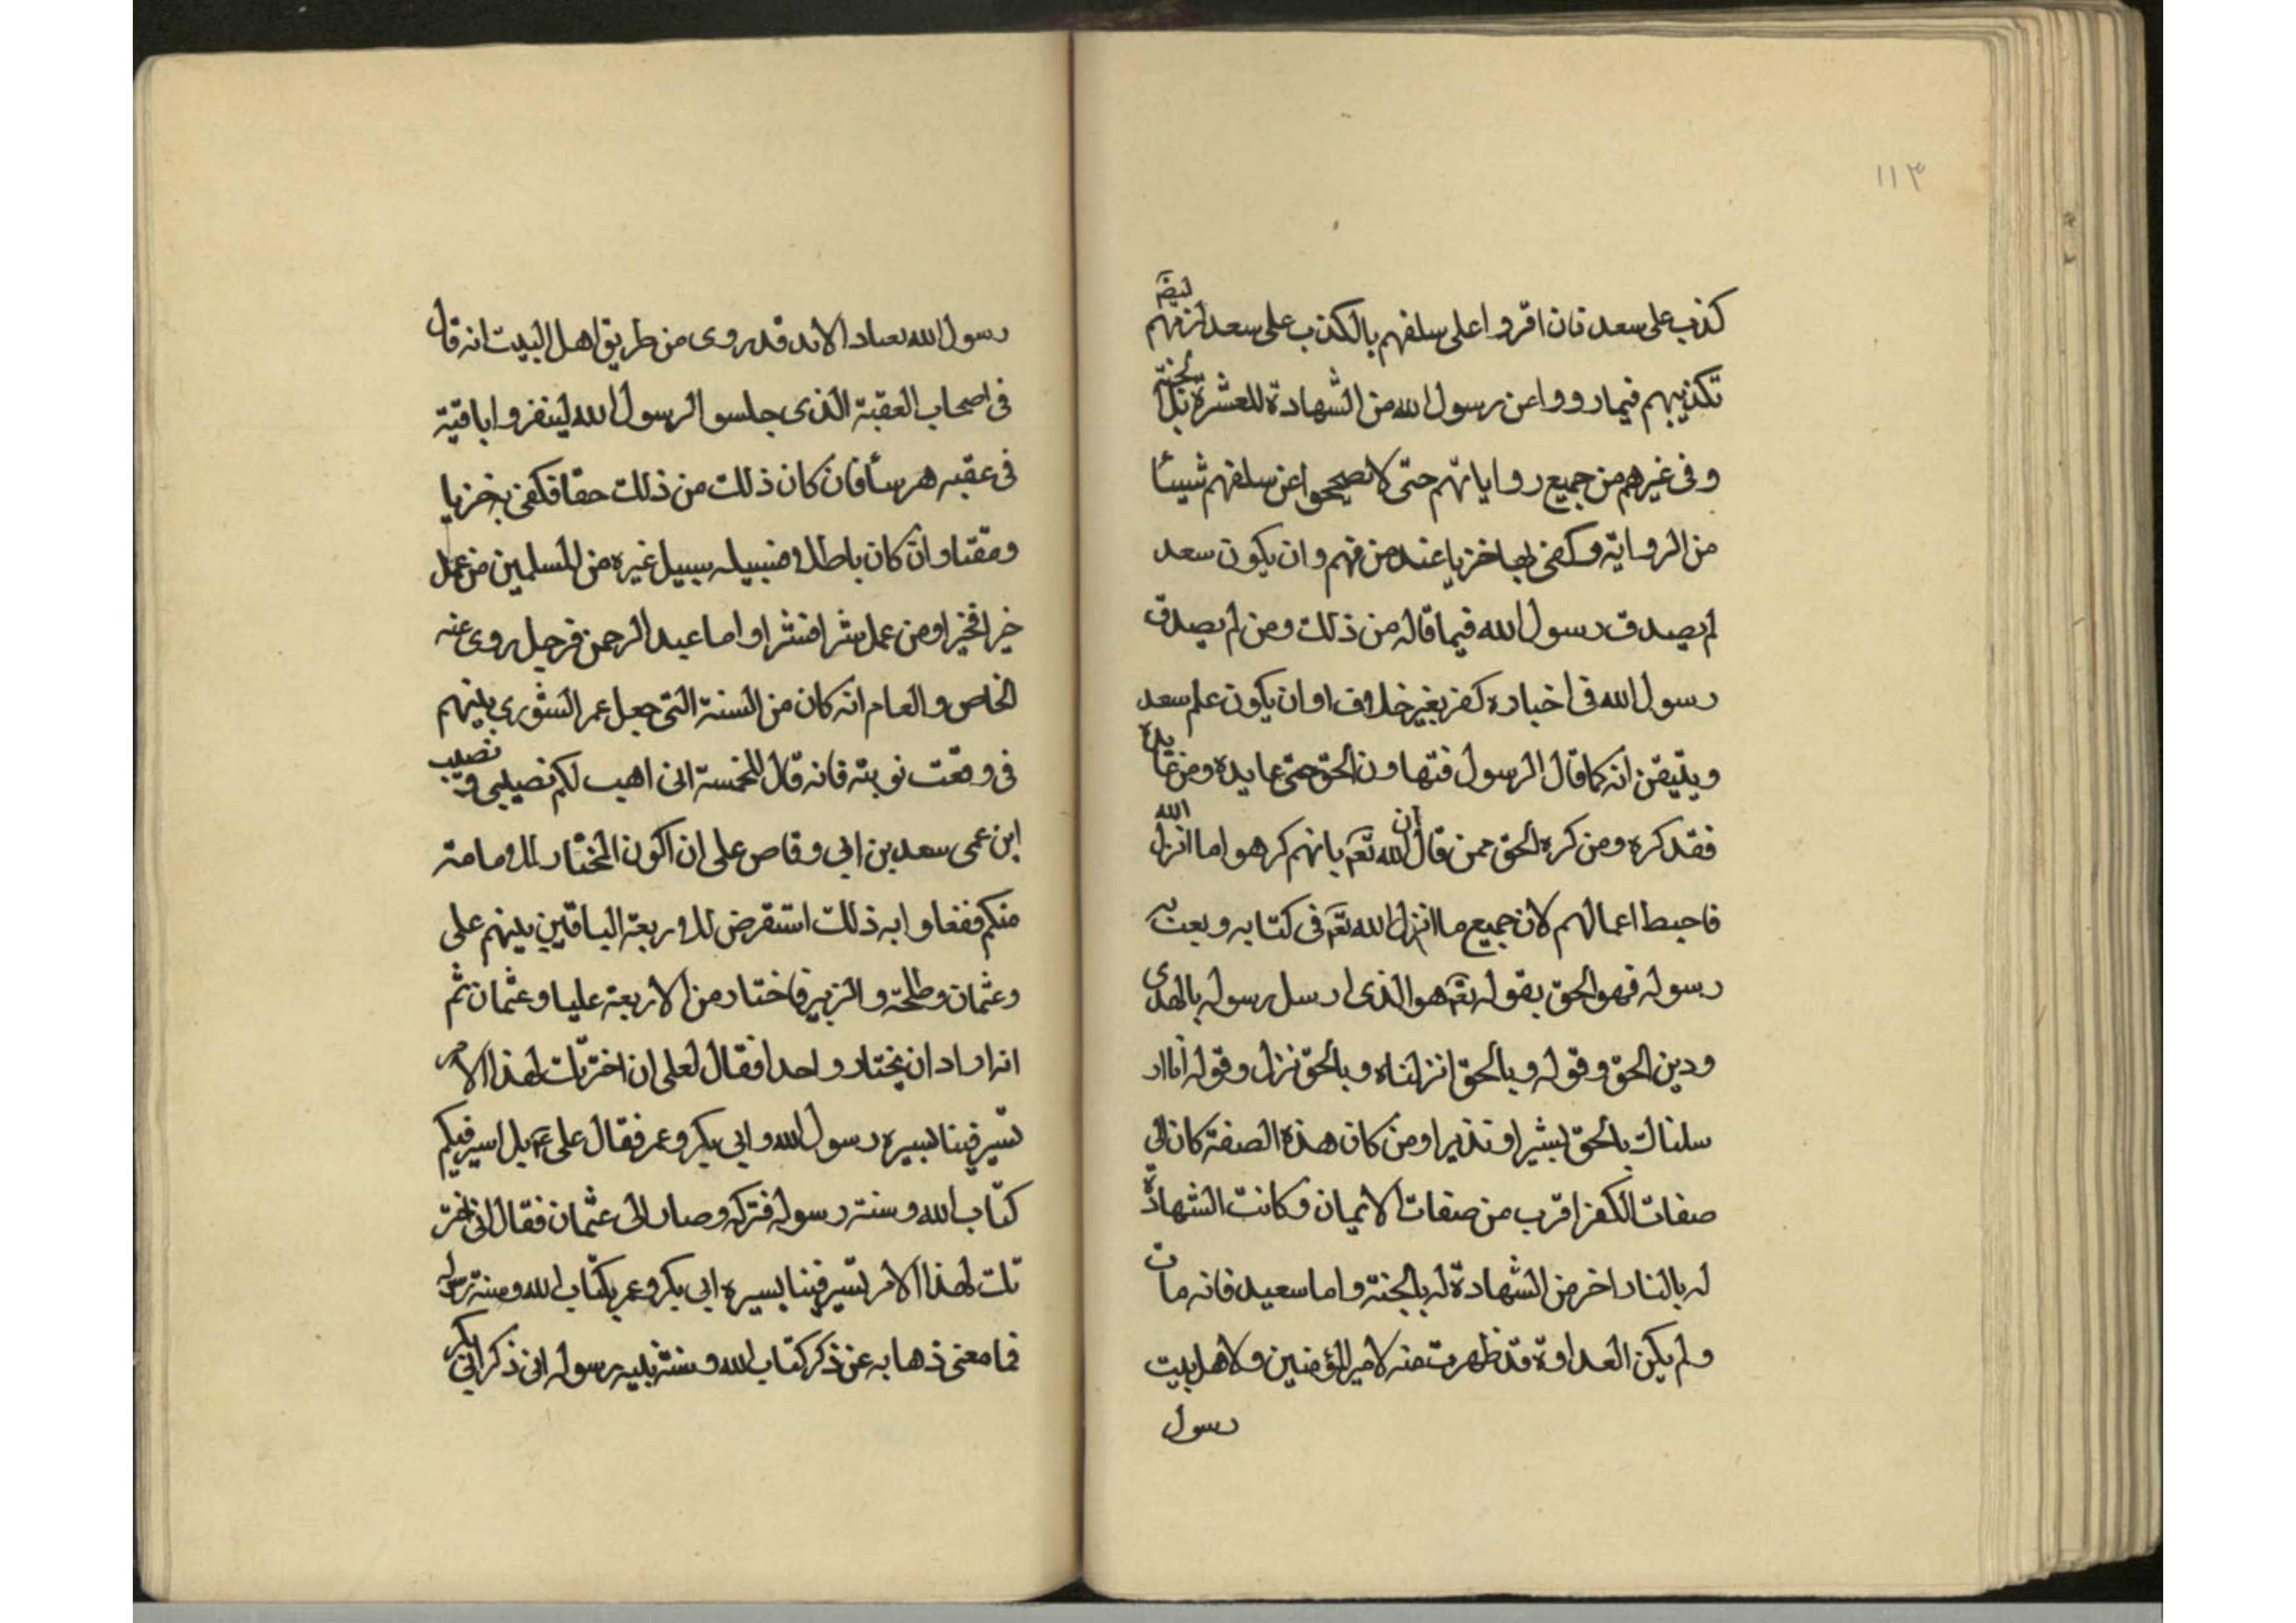 ١١٣
كذب على سعد فان اقروا على سلفهم بالكذب على سعد لزمهم ايضا
تكذيبهم فيما رووا عن رسول الله من الشهادة للعشرة بالجنة بل
وفى غيرهم من جميع رواياتهم حتى لا تصححوا عن سلفهم شيئا
من الرواية وكفى بها خزيا عند من فهم وان يكون سعد
لم يصدق رسول الله فيما قاله من ذلك ومن لم يصدق
رسول الله فى اخباره كفر بغير خلاف او ان يكون علم سعد
ويتيقن انه كما قال الرسول فتهاون الحق حتى عانده ومن عانده
فقد كره ومن كره الحق فمن قال ان الله تعم بانهم كرهوا ما انزل الله
فاحبط اعمالهم لان جميع ما انزل الله تعم فى كتابه وبعث به
رسوله فهو الحق بقوله تعم هو الذى ارسل رسوله بالهدى
ودين الحق وقوله وبالحق انزلناه وبالحق نزل وقوله انا ار
سلناك بالحق بشيرا ونذيرا ومن كان هذه الصفة كان الى
صفات الكفر اقرب من صفات الايمان وكانت الشهادة
له بالنار اخر من الشهادة له بالجنة واما سعيد فانه مات
ولم يكن العداوة قد ظهرت منه لامير المؤمنين ولاهل بيت
رسول
رسول الله بعباد الا انه قد روى من طريق اهل البيت انه قال
فى اصحاب العقبة الذى جلسو الرسول الله لينفروا به ناقته
فى عقبه هرسا فان كان ذلك من ذلك حقا فكفى بخزيا
ومقتا وان كان باطلا فسبيله سبيل غيره من المسلمين من عمل
خيرا فخيرا ومن عمل شرا فشرا واما عبد الرحمن فرجل روى عنه
الخاص والعام انه كان من الستة التى جعل عمر الشورى بينهم
فى وقعت نوبته فانه قال للخمسة انى اهب لكم نصيبى ونصيب
ابن عمى سعد بن ابى وقاص على ان اكون المختار للامامة
منكم ففعلوا به ذلك استقرض للاربعة الباقين بينهم على
وعثمان وطلحة والزبير فاختار من الاربعة عليا وعثمان ثم
انه اراد ان يختار واحدا فقال لعلى ان اخترتك لهذا الامر
تسير فينا بسيره رسول الله وابى بكر وعمر فقال على ع بل اسير فيكم
كتاب الله وسنة رسوله فتركه وصار الى عثمان فقال انى اختر
تك لهذا الامر تسير فينا بسيره ابى بكر وعمر بكتاب الله وسنة رسوله
فما معنى ذهابه عن ذكر كتاب الله وسنة نبيه رسوله الى ذكر ابى بكر